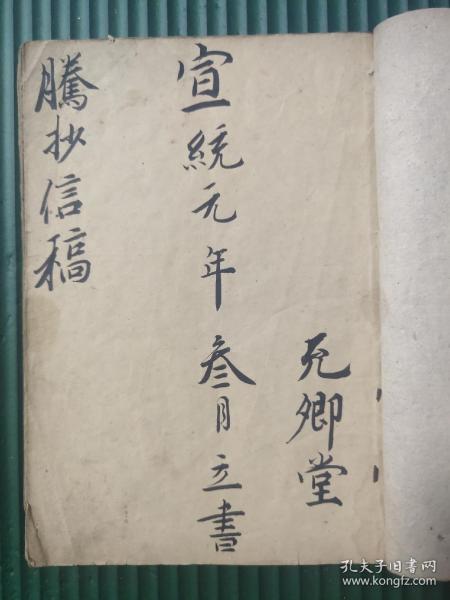 卿堂
宣統元年叁月立書
騰抄信稿
孔夫子旧书网
www.kongfz.com